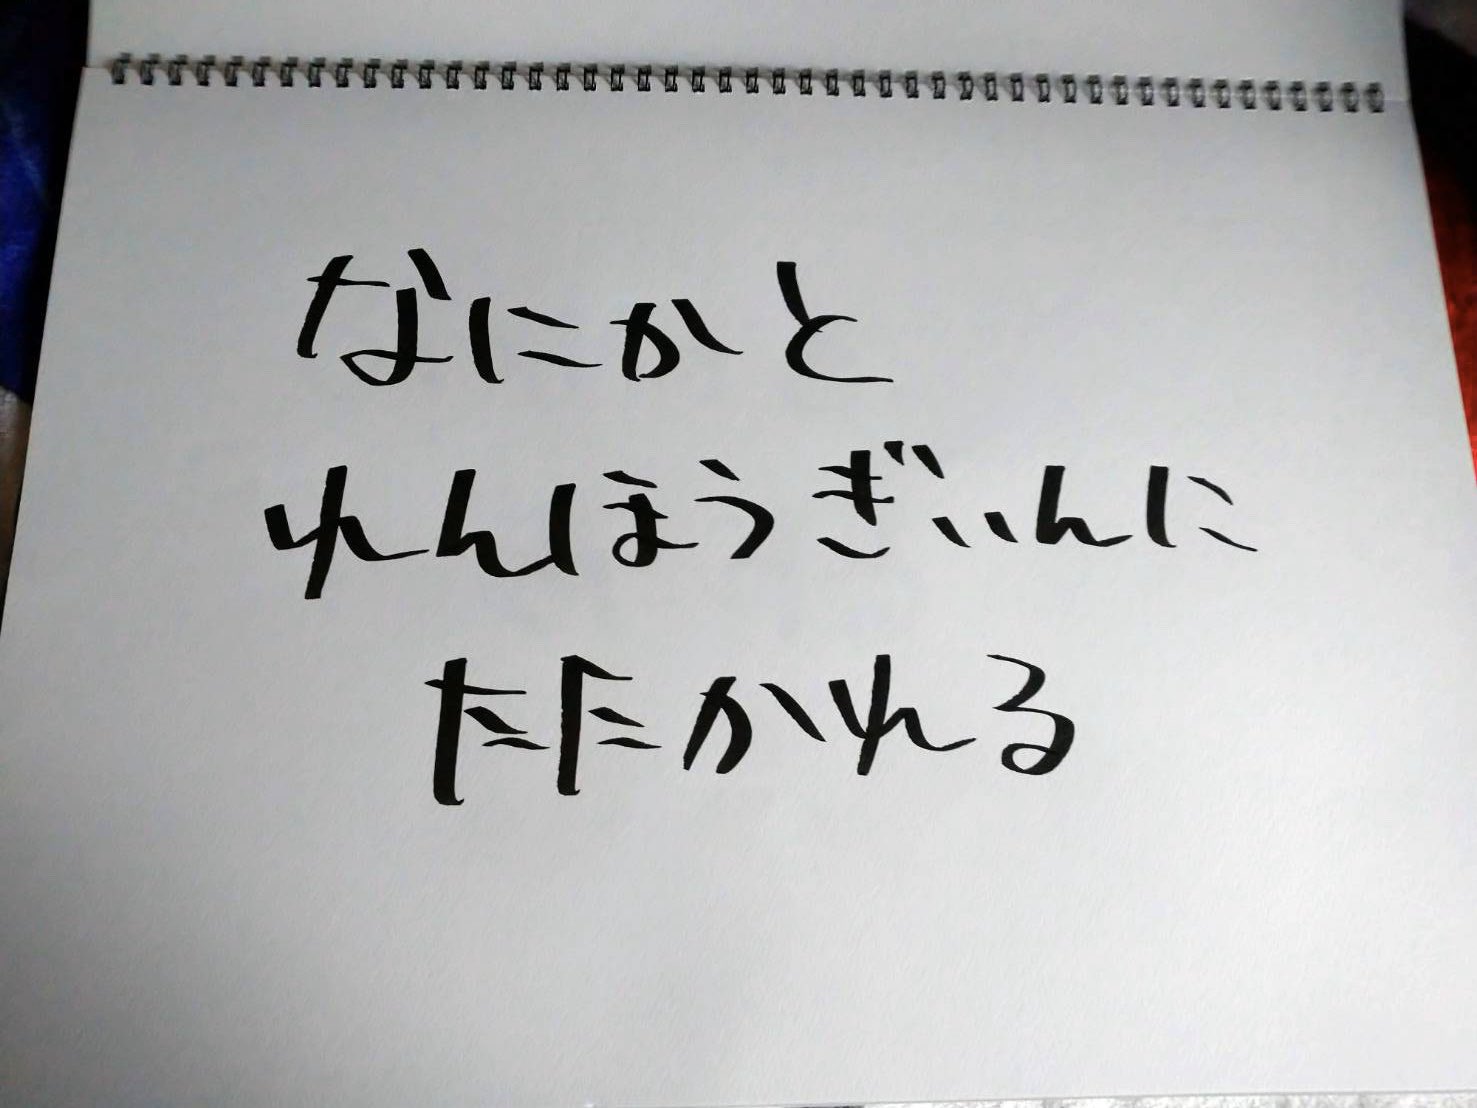 なにかと
れんほうぎいんに
たたかれる